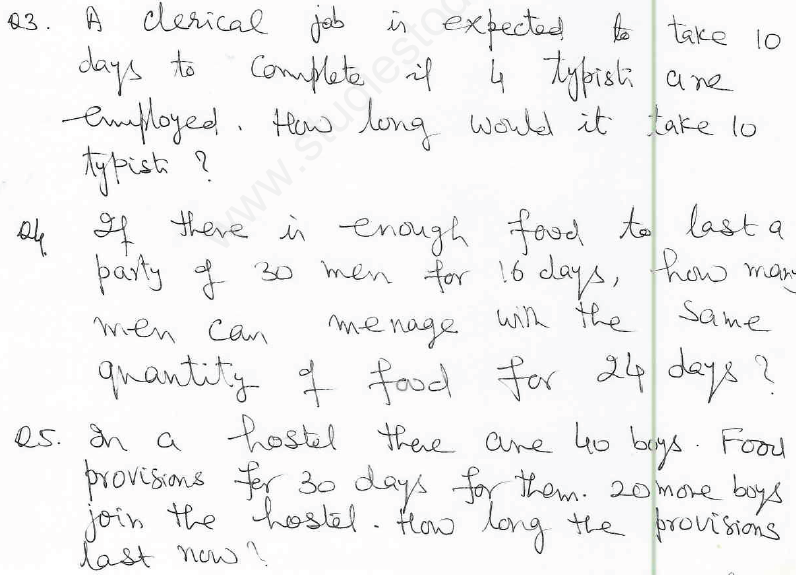 Q3. A clerical job is expected to take 10
days to complete if 4 typists are
employed. How long would it take 10
typists ?
Q4 If there is enough food to last a
party of 30 men for 16 days, how many
men can menage with the same
quantity of food for 24 days ?
Q5. In a hostel there are 40 boys. Food
provisions for 30 days for them. 20 more boys
join the hostel. How long the provisions
last now ?